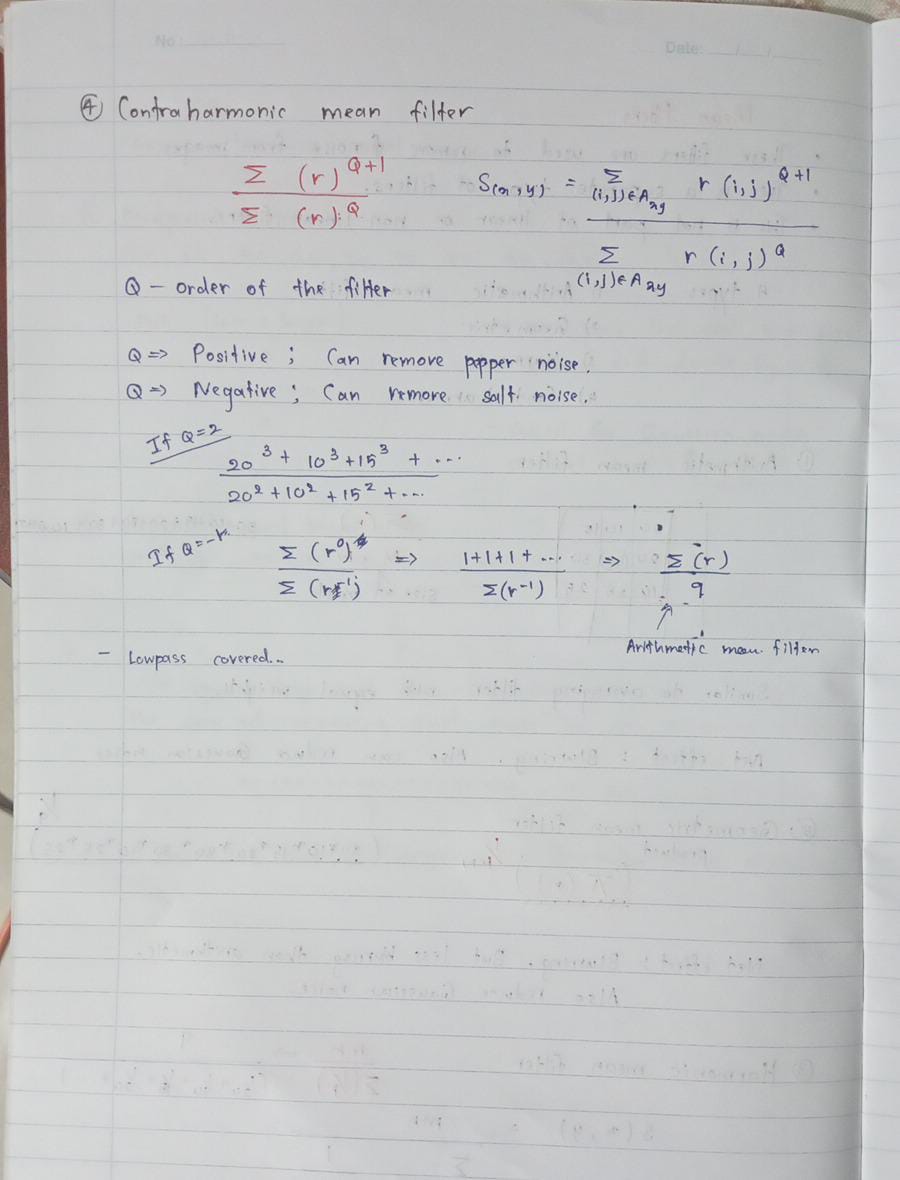 No
Date: / /
④ Contraharmonic mean filter
Σ (r)^Q+1 / Σ (r)^Q
S(x,y) = Σ (i,j)∈A_xy r(i,j)^Q+1 / Σ (i,j)∈A_xy r(i,j)^Q
Q – order of the filter
Q => Positive ; Can remove pepper noise.
Q => Negative ; Can remove salt noise.
If Q=2
20^3 + 10^3 + 15^3 + ... / 20^2 + 10^2 + 15^2 + ...
If Q=-1. Σ (r^0) / Σ (r^-1) => 1+1+1+... / Σ(r^-1) => Σ (r) / 9
Arithmetic mean filter
– Lowpass covered..